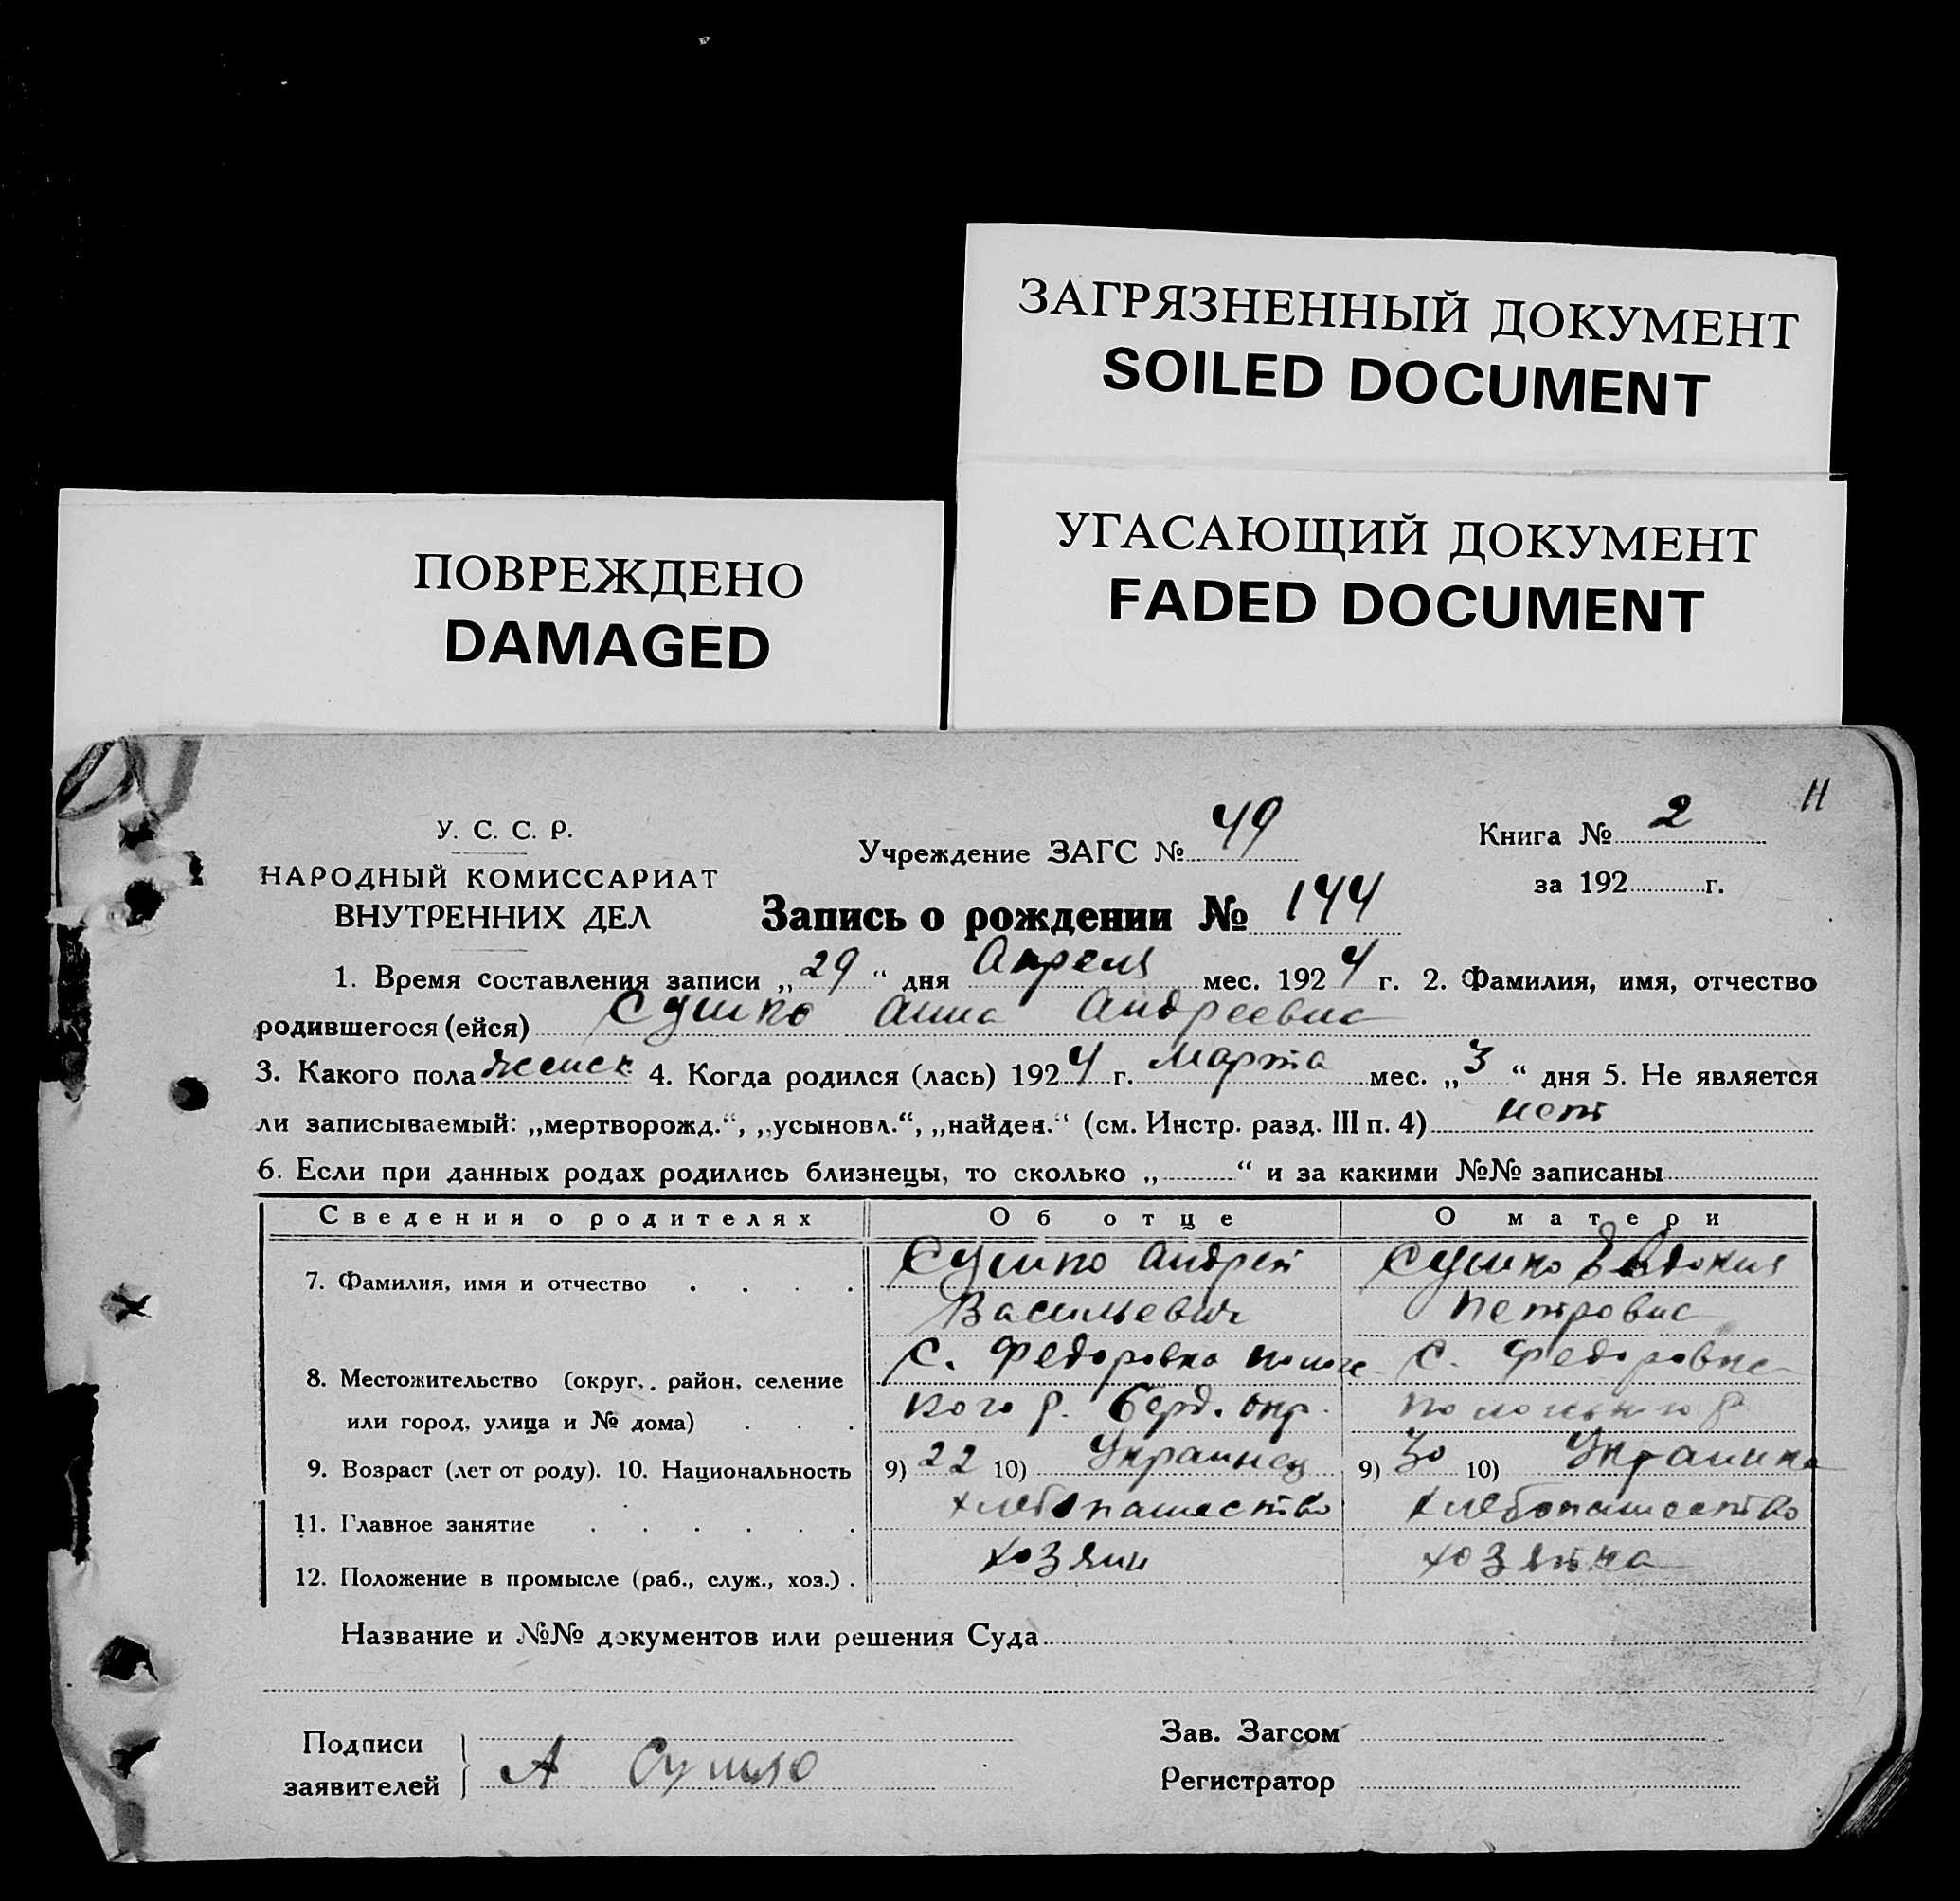 ЗАГРЯЗНЕННЫЙ ДОКУМЕНТ
SOILED DOCUMENT
УГАСАЮЩИЙ ДОКУМЕНТ
FADED DOCUMENT
ПОВРЕЖДЕНО
DAMAGED
11
У. С. С. Р.
НАРОДНЫЙ КОМИССАРИАТ
ВНУТРЕННИХ ДЕЛ
Учреждение ЗАГС № 49
Книга № 2
за 192 г.
Запись о рождении № 144
1. Время составления записи „29“ дня Апреля мес. 1924 г. 2. Фамилия, имя, отчество
родившегося (ейся) Сушко Анна Андреевна
3. Какого пола женск 4. Когда родился (лась) 1924 г. Марта мес. „3“ дня 5. Не является
ли записываемый: „мертворожд.“, „усыновл.“, „найден.“ (см. Инстр. разд. III п. 4) нет
6. Если при данных родах родились близнецы, то сколько „ “ и за какими №№ записаны
Сведения о родителях Об отце О матери
7. Фамилия, имя и отчество Сушко Андрей Сушко Евдокия
Васильевич Петровна
С. Федоровка Пологс- С. Федоровка
8. Местожительство (округ, район, селение
или город, улица и № дома) кого р. Берд. окр. Пологского р
9. Возраст (лет от роду). 10. Национальность 9) 22 10) Украинец 9) 30 10) Украинка
11. Главное занятие хлебопашество хлебопашество
12. Положение в промысле (раб., служ., хоз.) хозяин хозяйка
Название и №№ документов или решения Суда
Подписи
заявителей А Сушко
Зав. Загсом
Регистратор